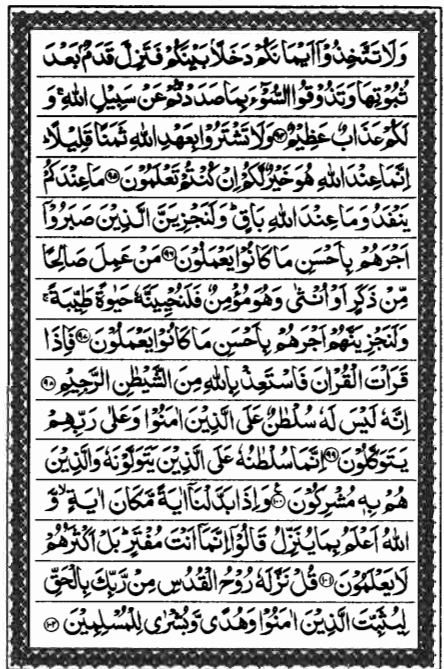 وَلَا تَتَّخِذُوْٓا اَيْمَانَكُمْ دَخَلًاۢ بَيْنَكُمْ فَتَزِلَّ قَدَمٌۢ بَعْدَ
ثُبُوْتِهَا وَتَذُوْقُوا السُّوْٓءَ بِمَا صَدَدْتُّمْ عَنْ سَبِيْلِ اللّٰهِ ۚ وَ
لَكُمْ عَذَابٌ عَظِيْمٌ ﴿۹۴﴾ وَلَا تَشْتَرُوْا بِعَهْدِ اللّٰهِ ثَمَنًا قَلِيْلًا ؕ
اِنَّمَا عِنْدَ اللّٰهِ هُوَ خَيْرٌ لَّكُمْ اِنْ كُنْتُمْ تَعْلَمُوْنَ ﴿۹۵﴾ مَا عِنْدَكُمْ
يَنْفَدُ وَمَا عِنْدَ اللّٰهِ بَاقٍ ؕ وَلَنَجْزِيَنَّ الَّذِيْنَ صَبَرُوْٓا
اَجْرَهُمْ بِاَحْسَنِ مَا كَانُوْا يَعْمَلُوْنَ ﴿۹۶﴾ مَنْ عَمِلَ صَالِحًا
مِّنْ ذَكَرٍ اَوْ اُنْثٰى وَهُوَ مُؤْمِنٌ فَلَنُحْيِيَنَّهٗ حَيٰوةً طَيِّبَةً ۚ
وَلَنَجْزِيَنَّهُمْ اَجْرَهُمْ بِاَحْسَنِ مَا كَانُوْا يَعْمَلُوْنَ ﴿۹۷﴾ فَاِذَا
قَرَاْتَ الْقُرْاٰنَ فَاسْتَعِذْ بِاللّٰهِ مِنَ الشَّيْطٰنِ الرَّجِيْمِ ﴿۹۸﴾
اِنَّهٗ لَيْسَ لَهٗ سُلْطٰنٌ عَلَى الَّذِيْنَ اٰمَنُوْا وَعَلٰى رَبِّهِمْ
يَتَوَكَّلُوْنَ ﴿۹۹﴾ اِنَّمَا سُلْطٰنُهٗ عَلَى الَّذِيْنَ يَتَوَلَّوْنَهٗ وَالَّذِيْنَ
هُمْ بِهٖ مُشْرِكُوْنَ ﴿۱۰۰﴾ وَاِذَا بَدَّلْنَآ اٰيَةً مَّكَانَ اٰيَةٍ ۙ وَّ
اللّٰهُ اَعْلَمُ بِمَا يُنَزِّلُ قَالُوْٓا اِنَّمَآ اَنْتَ مُفْتَرٍ ؕ بَلْ اَكْثَرُهُمْ
لَا يَعْلَمُوْنَ ﴿۱۰۱﴾ قُلْ نَزَّلَهٗ رُوْحُ الْقُدُسِ مِنْ رَّبِّكَ بِالْحَقِّ
لِيُثَبِّتَ الَّذِيْنَ اٰمَنُوْا وَهُدًى وَّبُشْرٰى لِلْمُسْلِمِيْنَ ﴿۱۰۲﴾